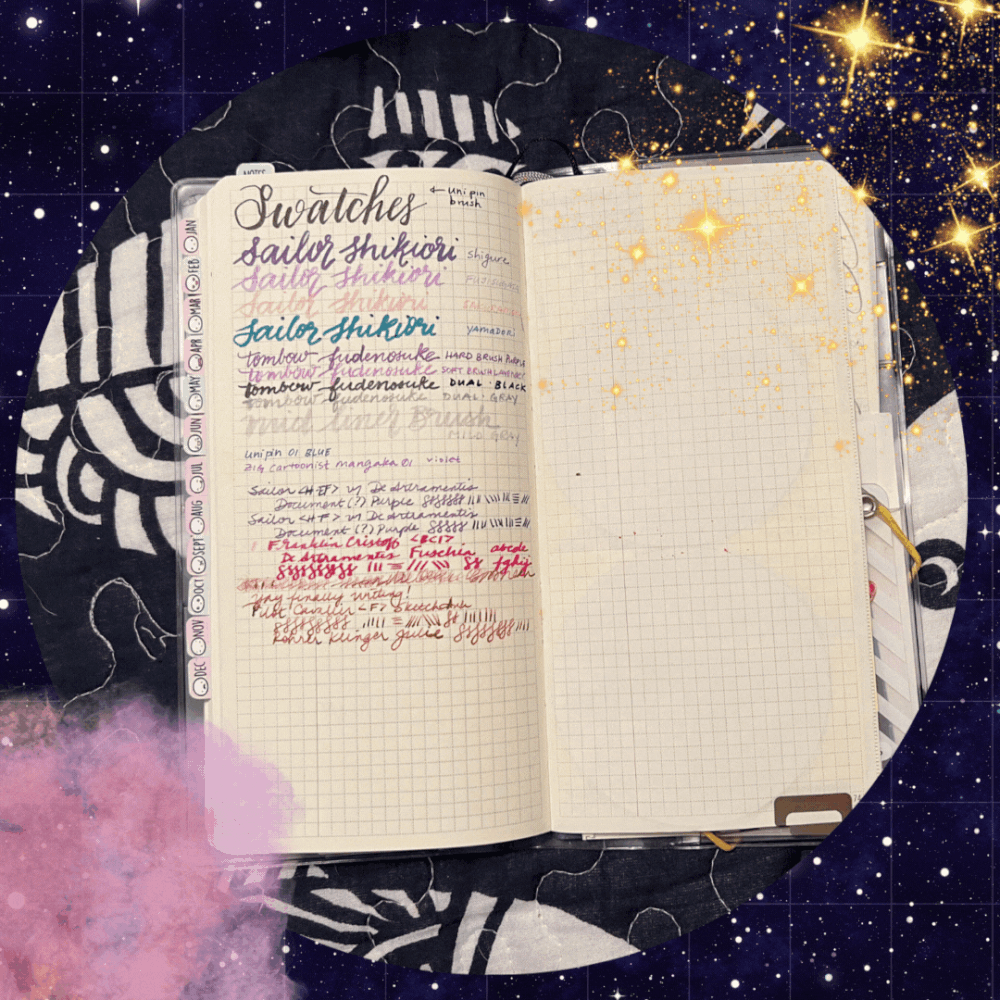 NOTES
Swatches
← uni pin
brush
Sailor Shikiori shigure
Sailor Shikiori
Sailor Shikiori
Sailor Shikiori YAMADORI
tombow fudenosuke HARD BRUSH PURPLE
tombow fudenosuke SOFT BRUSH LAVENDER
tombow fudenosuke DUAL · BLACK
tombow fudenosuke DUAL · GRAY
mild liner Brush
MILD GRAY
uni pin 01 BLUE
ZIG cartoonist mangaka 01 violet
Sailor <H-EF> w/ De Atramentis
Document (?) Purple
Sailor <H-F> w/ De Atramentis
Document (?) Purple
Franklin Cristoff
De Atramentis Fuschia abcde
fghij
Yay finally writing!
Pilot Cavalier <F>
Rohrer Klinger
JAN
FEB
MAR
APR
MAY
JUN
JUL
AUG
SEPT
OCT
NOV
DEC